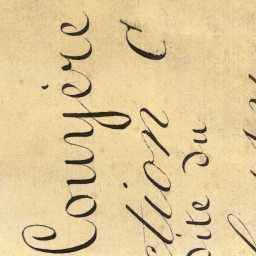 Couyère
ction C
dite du